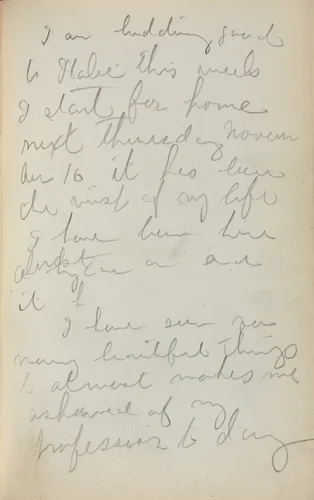 I am bidding good
to Italie this week
I start for home
next Thursday Novem
ber 16 it has been
the most of my life
I have been here
almost a year on and
it
I have seen so
many beautiful things
it almost makes me
ashamed of my
profession to day